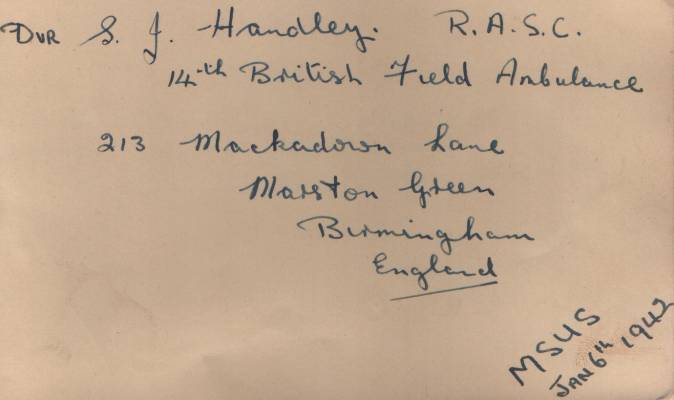 DVR S. J. Handley. R.A.S.C.
14th British Field Ambulance
213 Mackadown Lane
Marston Green
Birmingham
England
MSUS
JAN 6th 1942